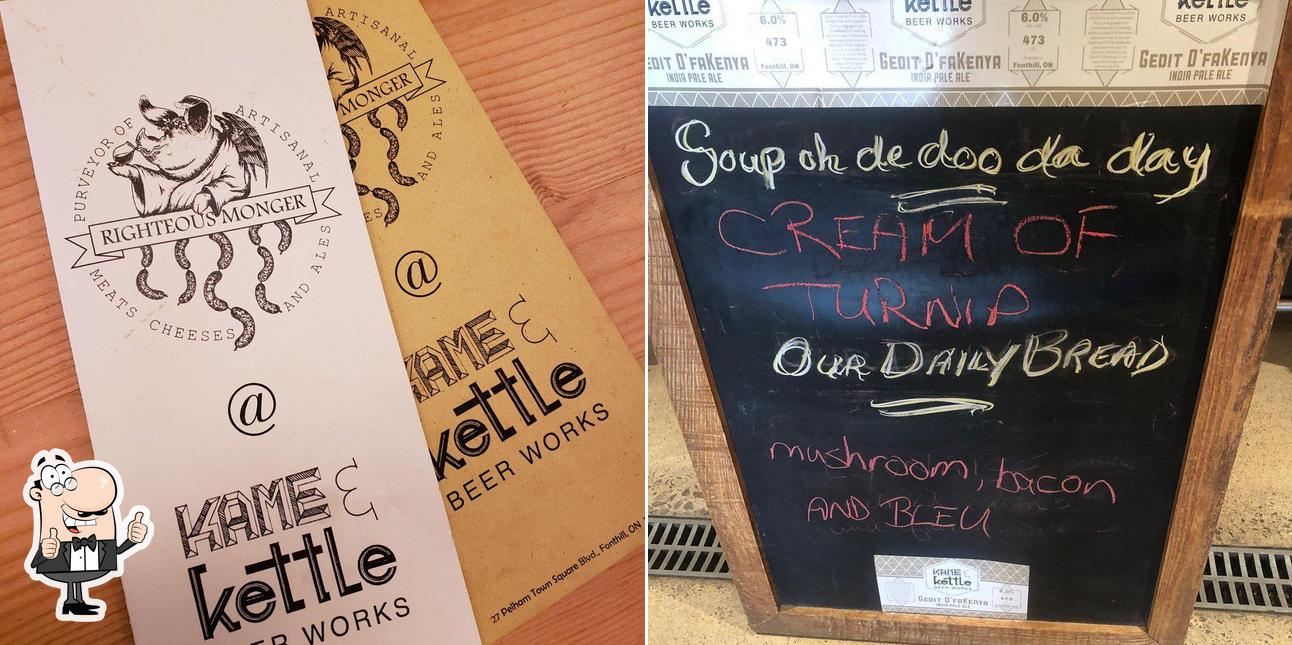 PURVEYOR OF ARTISANAL
RIGHTEOUS MONGER
MEATS CHEESES AND ALES
@
KAME &
kettle
BEER WORKS
ARTISANAL
MONGER
AND ALES
@
KAME &
kettle
BEER WORKS
27 Pelham Town Square Blvd., Fonthill, ON
kettle
BEER WORKS
GEDIT D'FAKENYA
INDIA PALE ALE
6.0%
473
Fonthill, ON
kettle
BEER WORKS
GEDIT D'FAKENYA
INDIA PALE ALE
6.0%
473
Fonthill, ON
kettle
BEER WORKS
GEDIT D'FAKENYA
INDIA PALE ALE
Soup oh de doo da day
CREAM OF
TURNIP
OUR DAILY BREAD
mushroom, bacon
AND BLEU
KAME &
kettle
BEER WORKS
GEDIT D'FAKENYA
INDIA PALE ALE
6.0%
473